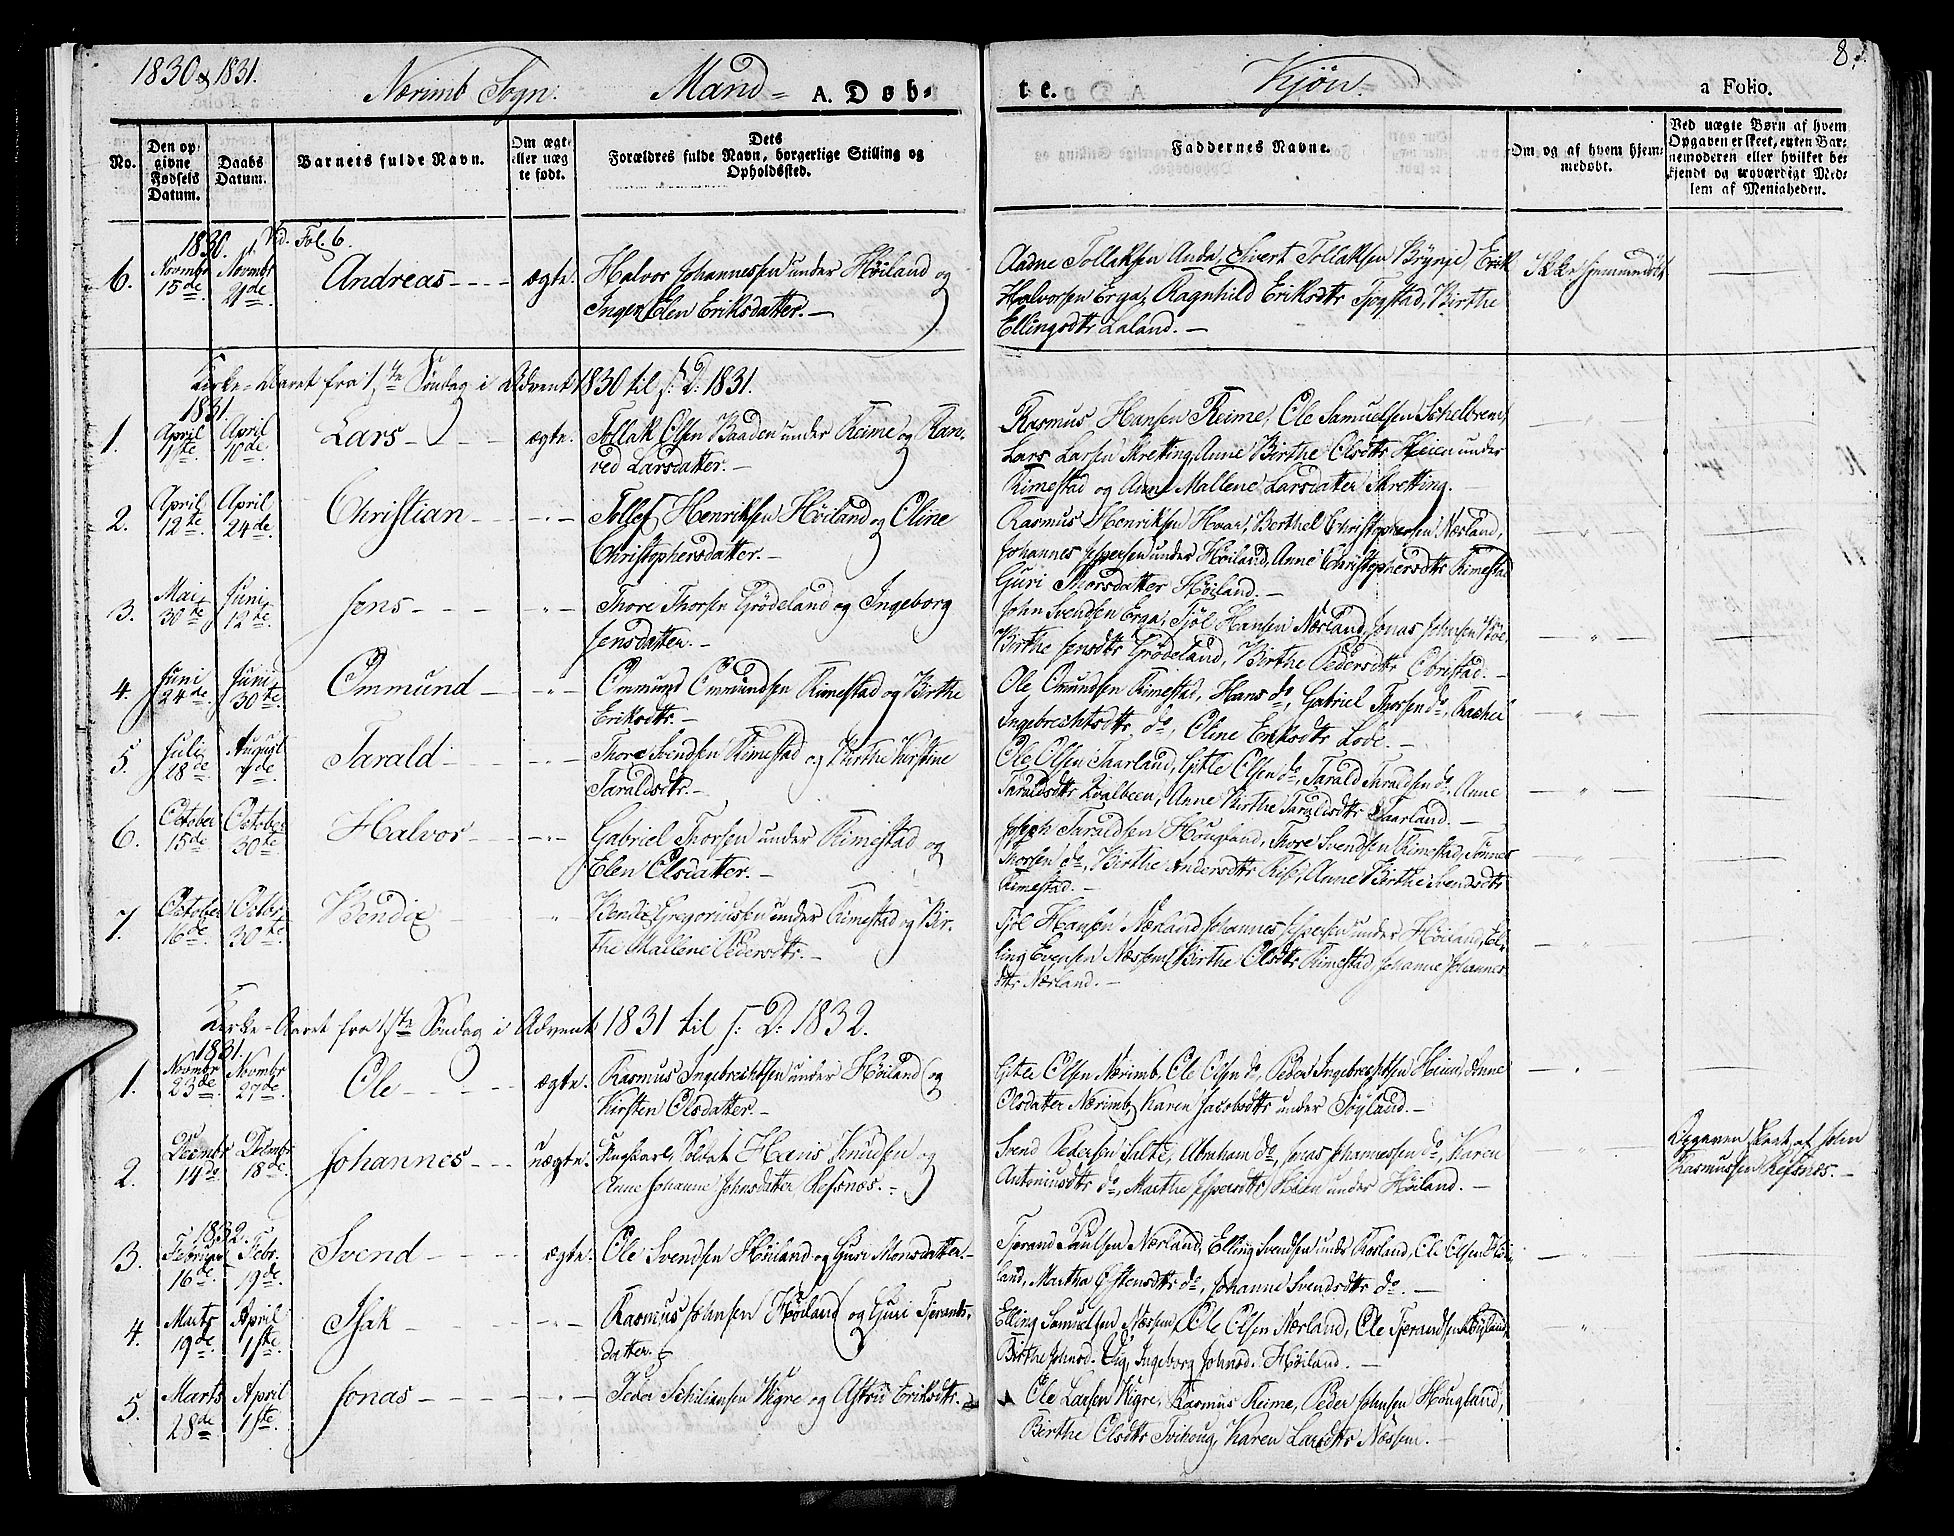 1830 & 1831.
Nærimb Sogn. Mand= A. Døb-
te. Kjön. a Folio. 8.
No.
Den opgivne Fødsels Datum.
Daabs Datum.
Barnets fulde Navn.
Om ægte eller uægte født.
Dets Forældres fulde Navn, borgerlige Stilling og Opholdssted.
Faddernes Navne.
Om og af hvem hjemmedøbt.
Ved uægte Børn af hvem Opgaven er skeet, enten Barnemoderen eller hvilket bekjendt og troværdigt Medlem af Menigheden.
1830. Vid. Fol. 6.
6. Novmbr 15de Novmbr 21de Andreas ægte. Halvor Johannessen under Höiland og
Inger Elen Eriksdatter.
Aadne Tollaksen Anda, Sivert Tollaksen Brynje, Erik
Halvorsen Erga, Ragnhild Eriksdtr Tjogstad, Birthe
Ellingsdtr Laland.
Ikke hjemmedöbt
Kirke-Aaret fra 1ste Söndag i Advent 1830 til s: D: 1831.
1831.
1. April 1ste April 10de Lars ægte. Tollak Olsen Baaden under Reime og Ran-
ved Larsdatter.
Rasmus Hansen Reime, Ole Samuelsen Schelbrei,
Lars Larsen Skretting, Anne Birthe Olsdtr Heien under
Rimestad og Anne Mallene Larsdatter Skretting.
2. April 12te April 24de Christian Tollef Henriksen Höiland og Oline
Christophersdatter.
Rasmus Henriksen Hvar, Berthel Christophersen Nærland,
Johannes Jespersen under Höiland, Anne Christophersdtr Rimestad
Guri Thorsdatter Höiland.
3. Mai 30te Juni 12te Jens Thore Thorsen Grödeland og Ingeborg
Jensdatter.
John Svendsen Erga, Tjöl Hansen Nærland, Jonas Johnsen Böe
Birthe Jensdtr Grödeland, Birthe Pedersdtr Obrestad.
4. Juni 24de Juni 30te Ommund Ommund Ommundsen Rimestad og Birthe
Eriksdtr.
Ole Omundsen Rimestad, Hans do, Gabriel Thorsen do, Rachel
Ingebrechtsdtr do, Oline Eriksdtr Lode.
5. Juli 18de August 7de Tarald Thore Svendsen Rimestad og Birthe Kirstine
Taraldsdtr.
Ole Olsen Taarland, Gitle Olsen do, Tarald Taraldsen do, Anne
Taraldsdtr Qvalbeen, Anne Birthe Taraldsdtr Taarland.
6. October 15de October 30te Halvor Gabriel Thorsen under Rimestad og
Elen Olsdatter.
Joseph Taraldsen Hougland, Thore Svendsen Rimestad, Tönnes
Thorsen do, Birthe Andersdtr Risz, Anne Birthe Svendsdtr
Rimestad.
7. October 16de Octbr. 30te Bendix Bendix Gregoriussen under Rimestad og Bir-
the Mallene Pedersdtr.
Tjöl Hansen Nærland, Johannes Jespersen under Höiland, El-
ling Evensen Næssem, Birthe Olsdtr Rimestad, Johanne Johannes-
dtr Nærland.
Kirke-Aaret fra 1ste Söndag i Advent 1831 til s: D: 1832.
1831.
1. Novmbr 23de Novmbr 27de Ole ægte. Rasmus Ingebrechtsen under Höiland og
Kirsten Olsdatter.
Gitle Olsen Nærimb, Ole Olsen do, Peder Ingebrechtsen Heien, Anne
Olsdatter Nærimb, Karen Jacobsdtr under Söyland.
2. Decmbr 14de Decmbr 18de Johannes uægte. Ungkarl, Soldat Hans Knudsen og
Anne Johanne Johnsdatter Refsnæs.
Svend Pedersen Salte, Abraham do, Jonas Johannessen do, Karen
Antoniusdtr do, Marthe Jespersdtr Heien under Höiland.
Opgaven skeet af John
Rasmussen Refsnæs.
1832.
3. Februar 16de Febr. 19de Svend ægte. Ole Svendsen Höiland og Guri Monsdatter.
Tjerand Paulsen Nærland, Elling Svendsen under Nærland, Ole Olsen Höi-
land, Martha Östensdtr do, Johanne Svendsdtr do.
4. Marts 19de April 1ste Isak Rasmus Johnsen Höiland og Guri Tjerands-
datter.
Elling Samuelsen Næssem, Ole Olsen Nærland, Ole Tjerandsen Höyland,
Birthe Johnsd. Vig, Ingeborg Johnsd. Höiland.
5. Marts 28de April 1ste Jonas Peder Schiliansen Vigre og Astrid Eriksdtr.
Ole Larsen Vigre, Rasmus Reime, Peder Johnsen Hougland,
Birthe Olsdtr Tvihoug, Karen Larsdtr Næssem.